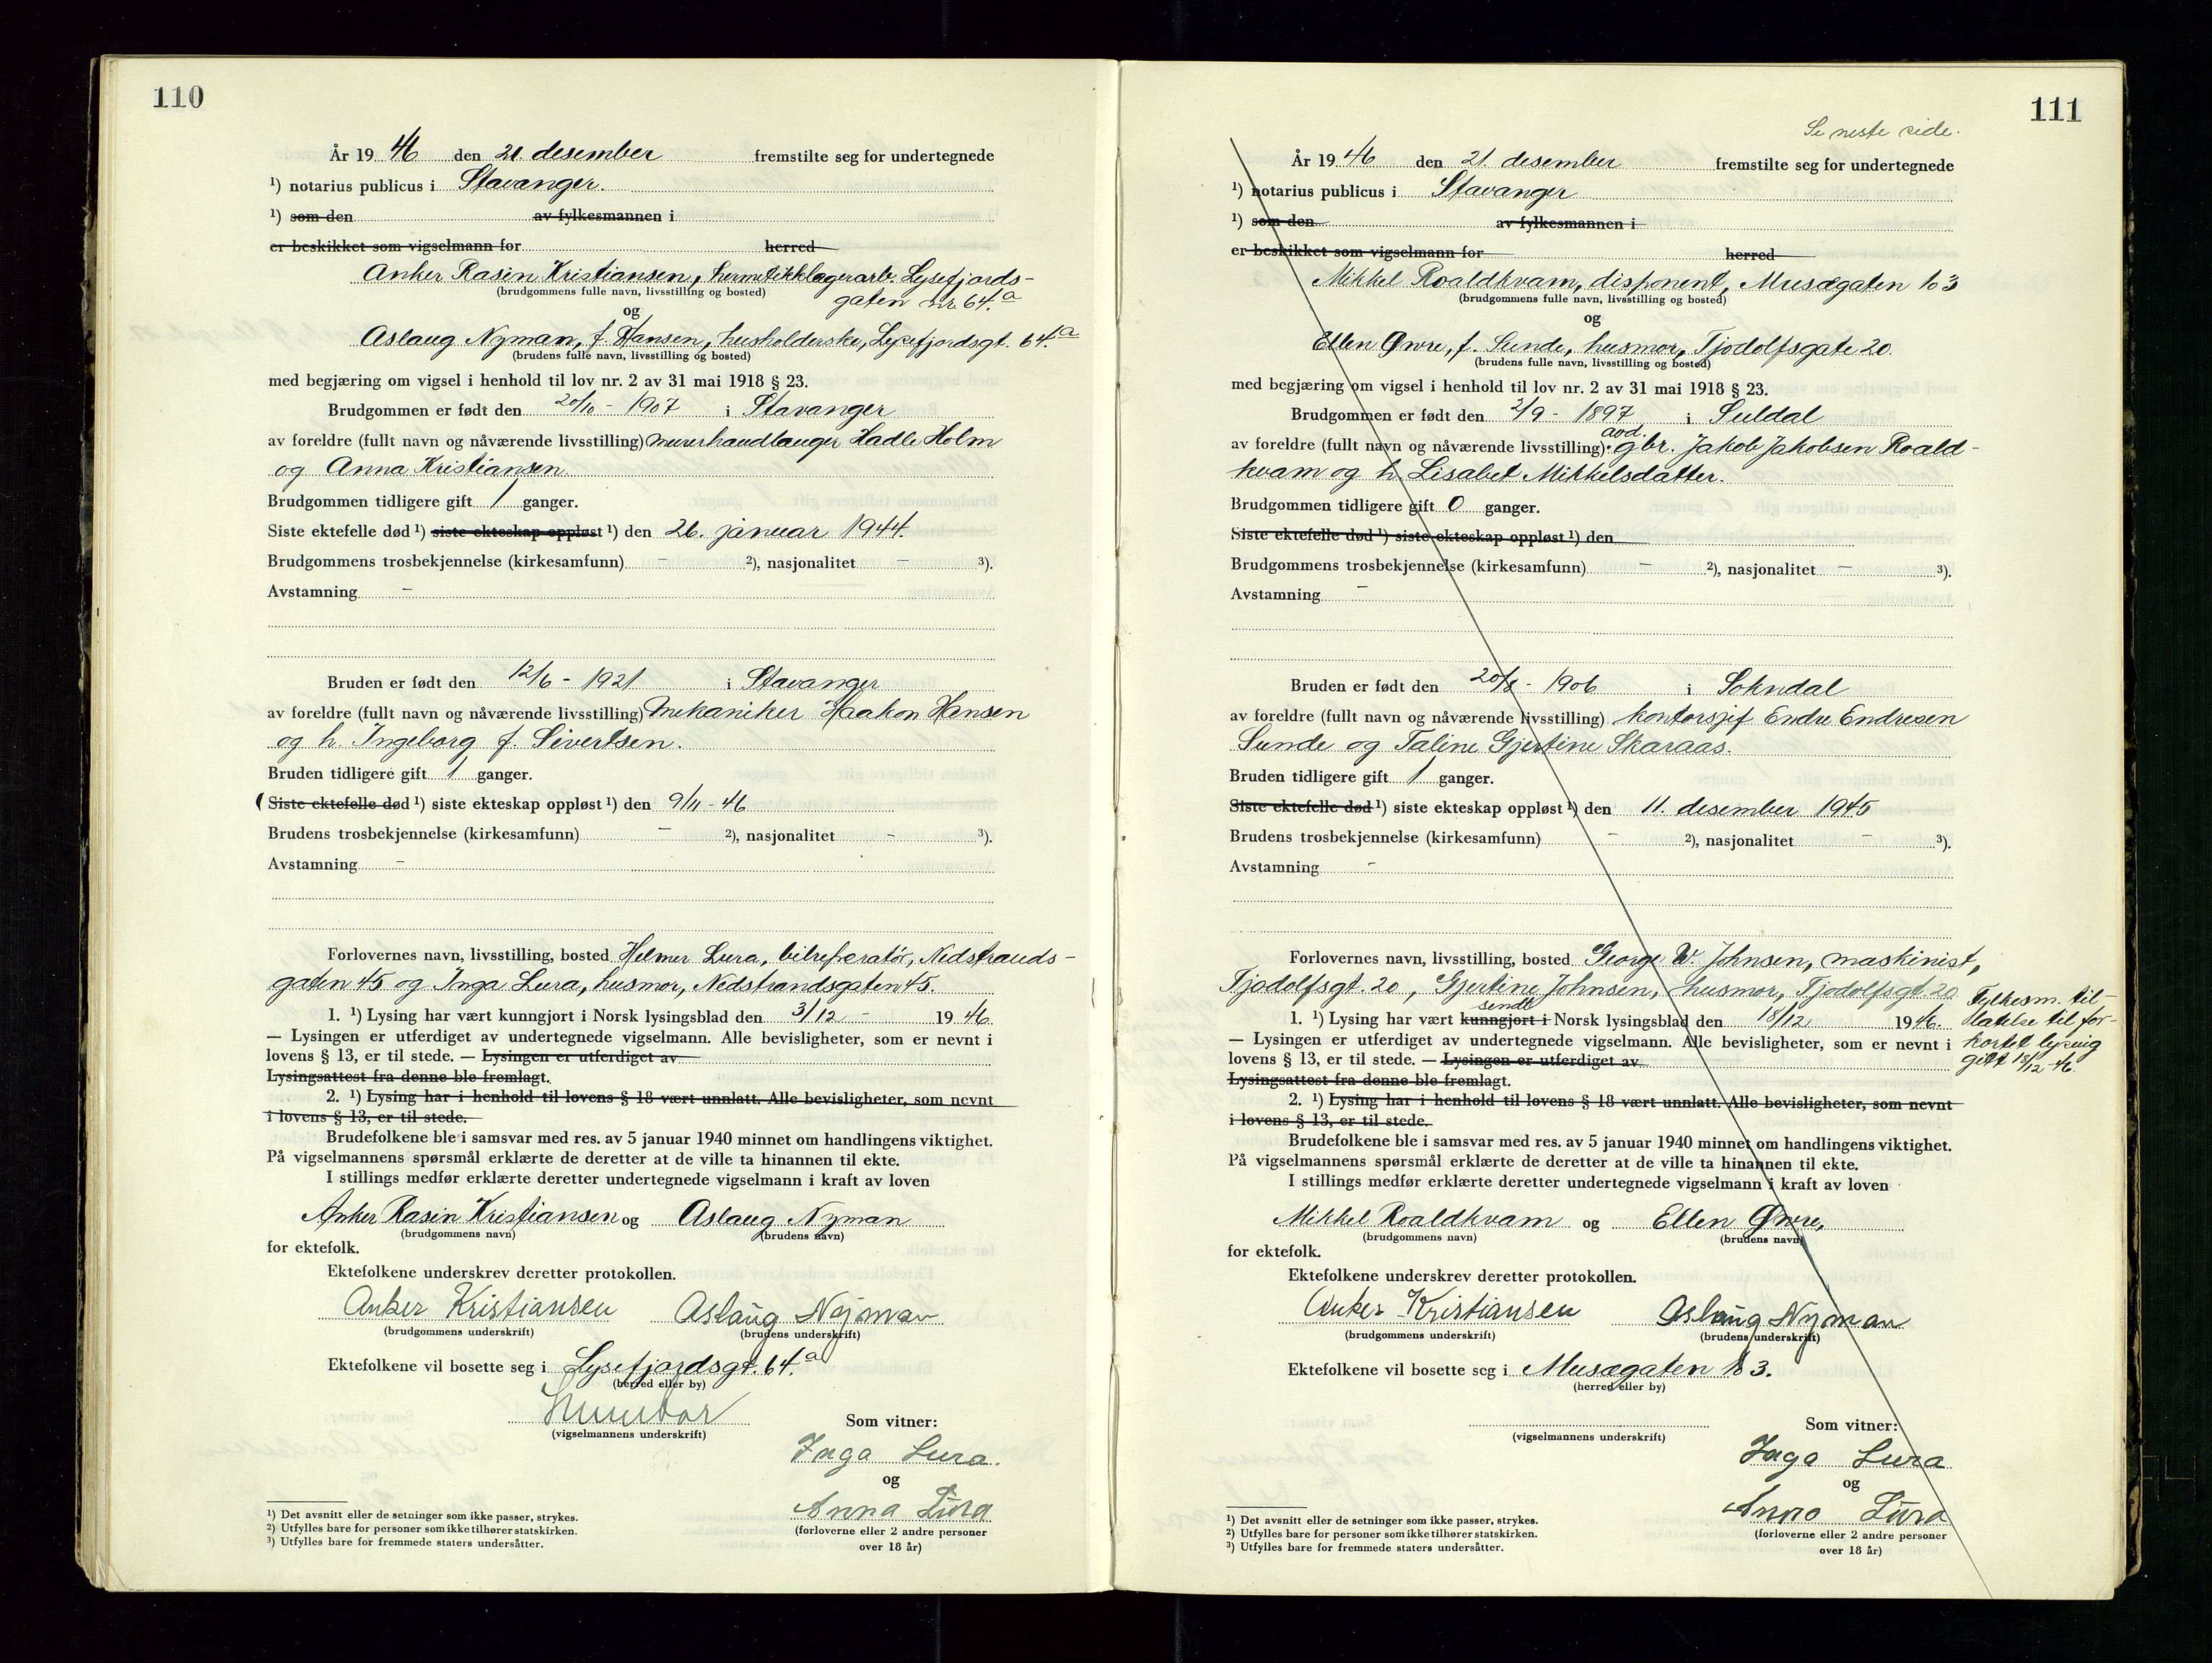 110
År 1946 den 21. desember fremstilte seg for undertegnede
¹) notarius publicus i Stavanger.
¹) som den av fylkesmannen i
er beskikket som vigselmann for herred
Anker Rasin Kristiansen, hermetikklagerarb. Lysefjords-
(brudgommens fulle navn, livsstilling og bosted) gaten nr. 64.a
og
Aslaug Nyman, f. Hansen, husholderske, Lysefjordsgt. 64.a
(brudens fulle navn, livsstilling og bosted)
med begjæring om vigsel i henhold til lov nr. 2 av 31 mai 1918 § 23.
Brudgommen er født den 20/10 - 1907 i Stavanger
av foreldre (fullt navn og nåværende livsstilling) murerhandlanger Hadle Holm
og Anna Kristiansen.
Brudgommen tidligere gift 1 ganger.
Siste ektefelle død ¹) siste ekteskap oppløst ¹) den 26. januar 1944.
Brudgommens trosbekjennelse (kirkesamfunn) – ²), nasjonalitet – ³).
Avstamning –
Bruden er født den 12/6 - 1921 i Stavanger
av foreldre (fullt navn og nåværende livsstilling) Mekaniker Haakon Hansen
og h. Ingeborg f. Sivertsen.
Bruden tidligere gift 1 ganger.
(Siste ektefelle død ¹) siste ekteskap oppløst ¹) den 9/11 - 46
Brudens trosbekjennelse (kirkesamfunn) – ²), nasjonalitet – ³).
Avstamning –
Forlovernes navn, livsstilling, bosted Helmer Lura, bilreperatør, Nedstrands-
gaten 45 og Inga Lura, husmor, Nedstrandsgaten 45.
1. ¹) Lysing har vært kunngjort i Norsk lysingsblad den 3/12 - 1946.
— Lysingen er utferdiget av undertegnede vigselmann. Alle bevisligheter, som er nevnt i
lovens § 13, er til stede. — Lysingen er utferdiget av
Lysingsattest fra denne ble fremlagt.
2. ¹) Lysing har i henhold til lovens § 18 vært unnlatt. Alle bevisligheter, som nevnt
i lovens § 13, er til stede.
Brudefolkene ble i samsvar med res. av 5 januar 1940 minnet om handlingens viktighet.
På vigselmannens spørsmål erklærte de deretter at de ville ta hinannen til ekte.
I stillings medfør erklærte deretter undertegnede vigselmann i kraft av loven
Anker Rasin Kristiansen og Aslaug Nyman
(brudgommens navn) (brudens navn)
for ektefolk.
Ektefolkene underskrev deretter protokollen.
Anker Kristiansen Aslaug Nyman
(brudgommens underskrift) (brudens underskrift)
Ektefolkene vil bosette seg i Lysefjordsgt. 64.a
(herred eller by)
(vigselmannens underskrift)
Som vitner:
Inga Lura.
og
Anna Lura
(forloverne eller 2 andre personer
over 18 år)
¹) Det avsnitt eller de setninger som ikke passer, strykes.
²) Utfylles bare for personer som ikke tilhører statskirken.
³) Utfylles bare for fremmede staters undersåtter.
111
Se neste side.
År 1946 den 21. desember fremstilte seg for undertegnede
¹) notarius publicus i Stavanger
¹) som den av fylkesmannen i
er beskikket som vigselmann for herred
Mikkel Roaldkvam, disponent, Musægaten 103
(brudgommens fulle navn, livsstilling og bosted)
og
Ellen Øvre, f. Sunde, husmor, Tjodolfsgate 20.
(brudens fulle navn, livsstilling og bosted)
med begjæring om vigsel i henhold til lov nr. 2 av 31 mai 1918 § 23.
Brudgommen er født den 2/9 - 1897 i Suldal
avd.
av foreldre (fullt navn og nåværende livsstilling) gbr. Jakob Jakobsen Roald-
kvam og h. Lisabet Mikkelsdatter.
Brudgommen tidligere gift 0 ganger.
Siste ektefelle død ¹) siste ekteskap oppløst ¹) den
Brudgommens trosbekjennelse (kirkesamfunn) – ²), nasjonalitet – ³).
Avstamning –
Bruden er født den 20/8 - 1906 i Sokndal
av foreldre (fullt navn og nåværende livsstilling) kontorsjef Endre Endresen
Sunde og Taline Gjertine Skaraas.
Bruden tidligere gift 1 ganger.
Siste ektefelle død ¹) siste ekteskap oppløst ¹) den 11. desember 1945
Brudens trosbekjennelse (kirkesamfunn) – ²), nasjonalitet – ³).
Avstamning –
Forlovernes navn, livsstilling, bosted George W. Johnsen, maskinist,
Tjodolfsgt. 20, Gjertine Johnsen, husmor, Tjodolfsgt 20
sendt
1. ¹) Lysing har vært kunngjort i Norsk lysingsblad den 18/12 1946.
— Lysingen er utferdiget av undertegnede vigselmann. Alle bevisligheter, som er nevnt i
lovens § 13, er til stede. — Lysingen er utferdiget av
Lysingsattest fra denne ble fremlagt.
Fylkesm. til-
latelse til for-
kortet lysing
gitt 18/12 46.
2. ¹) Lysing har i henhold til lovens § 18 vært unnlatt. Alle bevisligheter, som nevnt
i lovens § 13, er til stede.
Brudefolkene ble i samsvar med res. av 5 januar 1940 minnet om handlingens viktighet.
På vigselmannens spørsmål erklærte de deretter at de ville ta hinannen til ekte.
I stillings medfør erklærte deretter undertegnede vigselmann i kraft av loven
Mikkel Roaldkvam og Ellen Øvre,
(brudgommens navn) (brudens navn)
for ektefolk.
Ektefolkene underskrev deretter protokollen.
Anker Kristiansen Aslaug Nyman
(brudgommens underskrift) (brudens underskrift)
Ektefolkene vil bosette seg i Musægaten 103.
(herred eller by)
(vigselmannens underskrift)
Som vitner:
Inga Lura
og
Anna Lura
(forloverne eller 2 andre personer
over 18 år)
¹) Det avsnitt eller de setninger som ikke passer, strykes.
²) Utfylles bare for personer som ikke tilhører statskirken.
³) Utfylles bare for fremmede staters undersåtter.